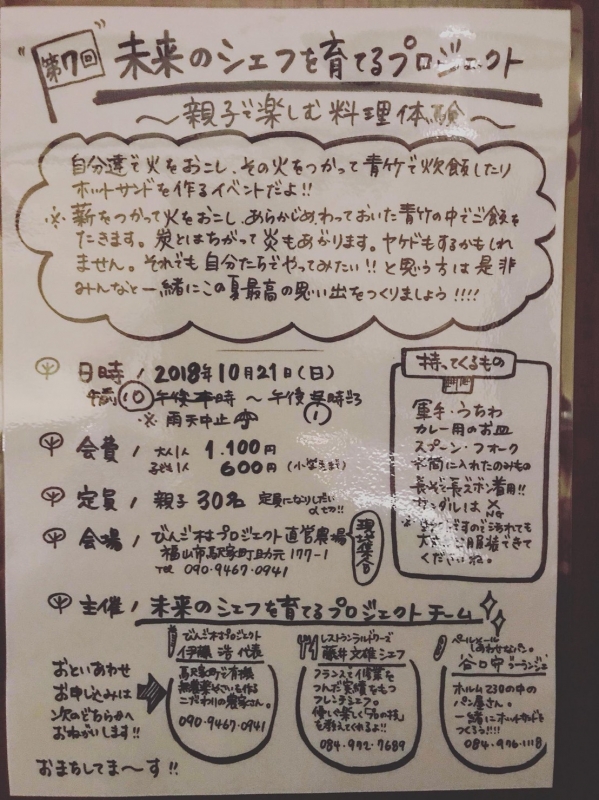 第7回 未来のシェフを育てるプロジェクト
〜親子で楽しむ料理体験〜
自分達で火をおこし、その火をつかって青竹で炊飯したり
ホットサンドを作るイベントだよ!!
※薪をつかって火をおこし、あらかじめわっておいた青竹の中でご飯を
たきます。炭とはちがって炎もあがります。ヤケドもするかもしれ
ません。それでも自分たちでやってみたい!!と思う方は是非
みんなと一緒にこの夏最高の思い出をつくりましょう!!!!
日時/2018年10月21日(日)
午前10時〜午後1時ごろ
※雨天中止
会費/大人1人 1.100円
子ども1人 600円(小学生まで)
定員/親子30名 定員になりしだい〆切!!
会場/びんご村プロジェクト直営農場
福山市高西町助元177-1
TEL 090-9467-0941
現場集合
持ってくるもの
軍手・うちわ
カレー用のお皿
スプーン・フォーク
水筒に入れたのみもの
長そで長ズボン着用!!
サンダルは×NG
ですので汚れても
大丈夫な服装できて
くださいね。
主催/未来のシェフを育てるプロジェクトチーム
おといあわせ
お申し込みは
次のどちらかへ
おねがいします!!
びんご村プロジェクト
伊藤 浩 代表
で有機
無農薬やさいを作る
こだわりの農家さん。
090-9467-0941
レストラン
藤井文雄シェフ
フランスで修業を
つんだ実績をもつ
フレンチシェフ。
優しく楽しく「プロの技」
を教えてくれるよ!!
084-972-7689
しあわせなパン。
谷口守 ブーランジェ
ホルム230の中の
パン屋さん。
一緒にホットサンドを
つくろう!!!!
084-976-1118
おまちしてま〜す!!